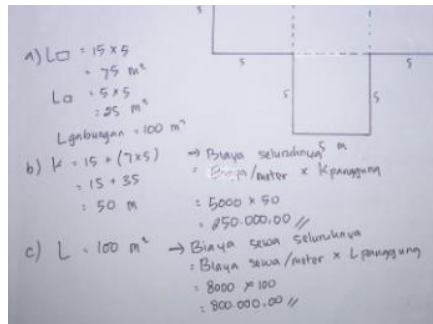 5
5
5
5
5
5 m
a) L▭ = 15 × 5
= 75 m²
L□ = 5×5
= 25 m²
Lgabungan = 100 m²
b) k = 15 + (7×5)
= 15 + 35
= 50 m
→ Biaya seluruhnya
= Biaya/meter × Kpanggung
= 5000 × 50
= 250.000,00 //
c) L = 100 m²
→ Biaya sewa seluruhnya
= Biaya sewa/meter × Lpanggung
= 8000 × 100
= 800.000,00 //